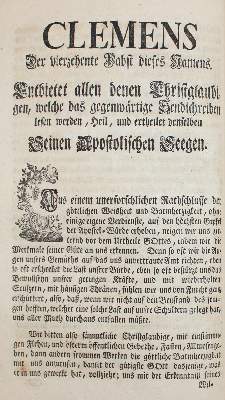 CLEMENS
Der vierzehente Pabst dieses Namens.
Entbietet allen denen Christglaubi
gen, welche das gegenwärtige Sendschreiben
lesen werden, Heil, und ertheilet denselben
Seinen Apostolischen Seegen.
Aus einem unerforschlichen Rathschlusse der
göttlichen Weisheit und Barmherzigkeit, ohne
einige eigene Verdienste, auf den höchsten Gipfel
der Apostel-Würde erhoben, neigen wir uns zit
ternd vor dem Urtheile GOttes, indem wir die
Merkmale seiner Güte an uns erkennen. Denn so oft wir die Au
gen unsers Gemüths auf das uns anvertraute Amt richten,
so oft erschrecket die Last unser Würde,
Bewustseyn unsrer geringen Kräfte, und mit wiederholten
Seufzern, mit häufigen Thränen, fühlen wir uns von Furcht ganz
erschüttert, also, daß, wenn wir nicht auf den Beystand des jeni
gen hoffeten, welcher eine solche Last auf unsre Schuldern gelegt hat,
uns aller Muth durchaus entfallen müßte.
Wir bitten also sämmtliche Christglaubige, mit einstimmi
gen Flehen, und öfterm öffentlichen Gebethe, Fasten, Allmosenge
ben, dann andern frommen Werken die göttliche Barmherzigkeit
mit uns anzurufen, damit der gütigste GOtt dasjenige, was
er in uns gewirkt hat, vollziehe; uns mit der Erkenntniß seines
Wil-